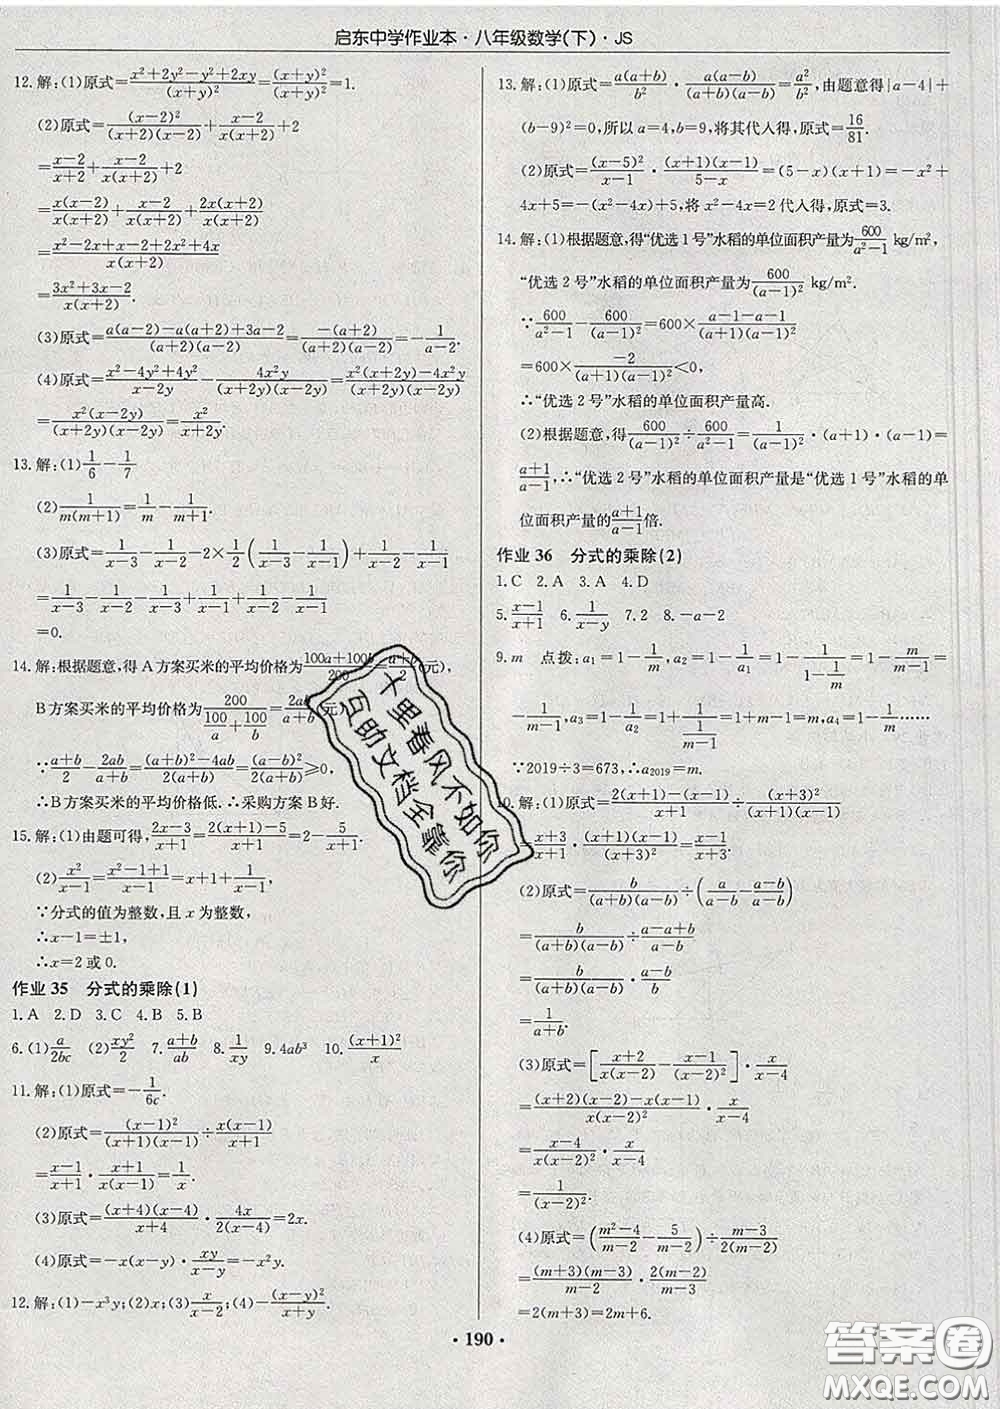 启东中学作业本·八年级数学(下)·JS
12.解:(1)原式=\frac{x²+2y²-y²+2xy}{(x+y)²}=\frac{(x+y)²}{(x+y)²}=1.
(2)原式=\frac{(x-2)²}{(x+2)(x-2)}+\frac{x-2}{x(x+2)}+2
=\frac{x-2}{x+2}+\frac{x-2}{x(x+2)}+2
=\frac{x(x-2)}{x(x+2)}+\frac{x-2}{x(x+2)}+\frac{2x(x+2)}{x(x+2)}
=\frac{x²-2x+x-2+2x²+4x}{x(x+2)}
=\frac{3x²+3x-2}{x(x+2)}.
(3)原式=\frac{a(a-2)-a(a+2)+3a-2}{(a+2)(a-2)}=\frac{-(a+2)}{(a+2)(a-2)}=-\frac{1}{a-2}.
(4)原式=\frac{x²-4y²+4y²}{x-2y}-\frac{4x²y}{(x+2y)(x-2y)}=\frac{x²(x+2y)-4x²y}{(x+2y)(x-2y)}
=\frac{x²(x-2y)}{(x+2y)(x-2y)}=\frac{x²}{x+2y}.
13.解:(1)\frac{1}{6}-\frac{1}{7}
(2)\frac{1}{m(m+1)}=\frac{1}{m}-\frac{1}{m+1}.
(3)原式=\frac{1}{x-3}-\frac{1}{x-2}-2×\frac{1}{2}(\frac{1}{x-3}-\frac{1}{x-1})+\frac{1}{x-2}-\frac{1}{x-1}
=\frac{1}{x-3}-\frac{1}{x-2}-\frac{1}{x-3}+\frac{1}{x-1}+\frac{1}{x-2}-\frac{1}{x-1}
=0.
14.解:根据题意,得A方案买米的平均价格为\frac{100a+100b}{200}=\frac{a+b}{2}(元),
B方案买米的平均价格为\frac{200}{\frac{100}{a}+\frac{100}{b}}=\frac{2ab}{a+b}(元).
∵\frac{a+b}{2}-\frac{2ab}{a+b}=\frac{(a+b)²-4ab}{2(a+b)}=\frac{(a-b)²}{2(a+b)}≥0,
∴B方案买米的平均价格低. ∴采购方案B好.
15.解:(1)由题可得,\frac{2x-3}{x+1}=\frac{2(x+1)-5}{x+1}=2-\frac{5}{x+1}.
(2)\frac{x²}{x-1}=\frac{x²-1+1}{x-1}=x+1+\frac{1}{x-1}.
∵分式的值为整数,且x为整数,
∴x-1=±1,
∴x=2或0.
作业 35 分式的乘除(1)
1.A 2.D 3.C 4.B 5.B
6.(1)\frac{a}{2bc} (2)\frac{xy²}{2} 7.\frac{a+b}{ab} 8.\frac{1}{xy} 9.4ab³ 10.\frac{(x+1)²}{x}
11.解:(1)原式=-\frac{1}{6c}.
(2)原式=\frac{(x-1)²}{(x+1)(x-1)}÷\frac{x(x-1)}{x+1}
=\frac{x-1}{x+1}·\frac{x+1}{x(x-1)}=\frac{1}{x}.
(3)原式=\frac{(x+4)(x-4)}{x+4}·\frac{4x}{2(x-4)}=2x.
(4)原式=-x(x-y)·\frac{xy}{x-y}=-x²y.
12.解:(1)-x³y;(2)x;(3)\frac{x}{x-2};(4)-\frac{(x-y)²}{x+y}.
13.解:(1)原式=\frac{a(a+b)}{b²}·\frac{a(a-b)}{(a+b)(a-b)}=\frac{a²}{b²},由题意得|a-4|+
(b-9)²=0,所以a=4,b=9,将其代入得,原式=\frac{16}{81}.
(2)原式=\frac{(x-5)²}{x-1}·\frac{(x+1)(x-1)}{5-x}=(5-x)(x+1)=-x²+
4x+5=-(x²-4x)+5,将x²-4x=2代入得,原式=3.
14.解:(1)根据题意,得“优选1号”水稻的单位面积产量为\frac{600}{a²-1} kg/m²,
“优选2号”水稻的单位面积产量为\frac{600}{(a-1)²} kg/m².
∵\frac{600}{a²-1}-\frac{600}{(a-1)²}=600×\frac{a-1-a-1}{(a+1)(a-1)²}
=600×\frac{-2}{(a+1)(a-1)²}<0,
∴“优选2号”水稻的单位面积产量高.
(2)根据题意,得\frac{600}{(a-1)²}÷\frac{600}{a²-1}=\frac{1}{(a-1)²}·(a+1)·(a-1)=
\frac{a+1}{a-1},∴“优选2号”水稻的单位面积产量是“优选1号”水稻的单
位面积产量的\frac{a+1}{a-1}倍.
作业 36 分式的乘除(2)
1.C 2.A 3.A 4.D
5.\frac{x-1}{x+1} 6.\frac{1}{x-y} 7.2 8.-a-2
9.m 点拨:a₁=1-\frac{1}{m},a₂=1-\frac{1}{a₁}=1-\frac{1}{1-\frac{1}{m}}=1-\frac{m}{m-1}=
-\frac{1}{m-1},a₃=1-\frac{1}{a₂}=1+\frac{1}{\frac{1}{m-1}}=1+m-1=m,a₄=1-\frac{1}{m}……
∵2019÷3=673,∴a₂₀₁₉=m.
10.解:(1)原式=\frac{2(x-1)-(x-5)}{x+1}÷\frac{(x+3)²}{(x+1)(x-1)}
=\frac{x+3}{x+1}·\frac{(x+1)(x-1)}{(x+3)²}=\frac{x-1}{x+3}.
(2)原式=\frac{b}{(a+b)(a-b)}÷(\frac{a}{a-b}-\frac{a-b}{a-b})
=\frac{b}{(a+b)(a-b)}÷\frac{a-a+b}{a-b}
=\frac{b}{(a+b)(a-b)}·\frac{a-b}{b}
=\frac{1}{a+b}.
(3)原式=[\frac{x+2}{x(x-2)}-\frac{x-1}{(x-2)²}]·\frac{x}{x-4}
=\frac{(x+2)(x-2)-x(x-1)}{x(x-2)²}·\frac{x}{x-4}
=\frac{x-4}{x(x-2)²}·\frac{x}{x-4}
=\frac{1}{(x-2)²}.
(4)原式=(\frac{m²-4}{m-2}-\frac{5}{m-2})÷\frac{m-3}{2(m-2)}
=\frac{(m+3)(m-3)}{m-2}·\frac{2(m-2)}{m-3}
=2(m+3)=2m+6.
十里春风不如你
互助文档全靠你
·190·
答案圈
MXQE.COM